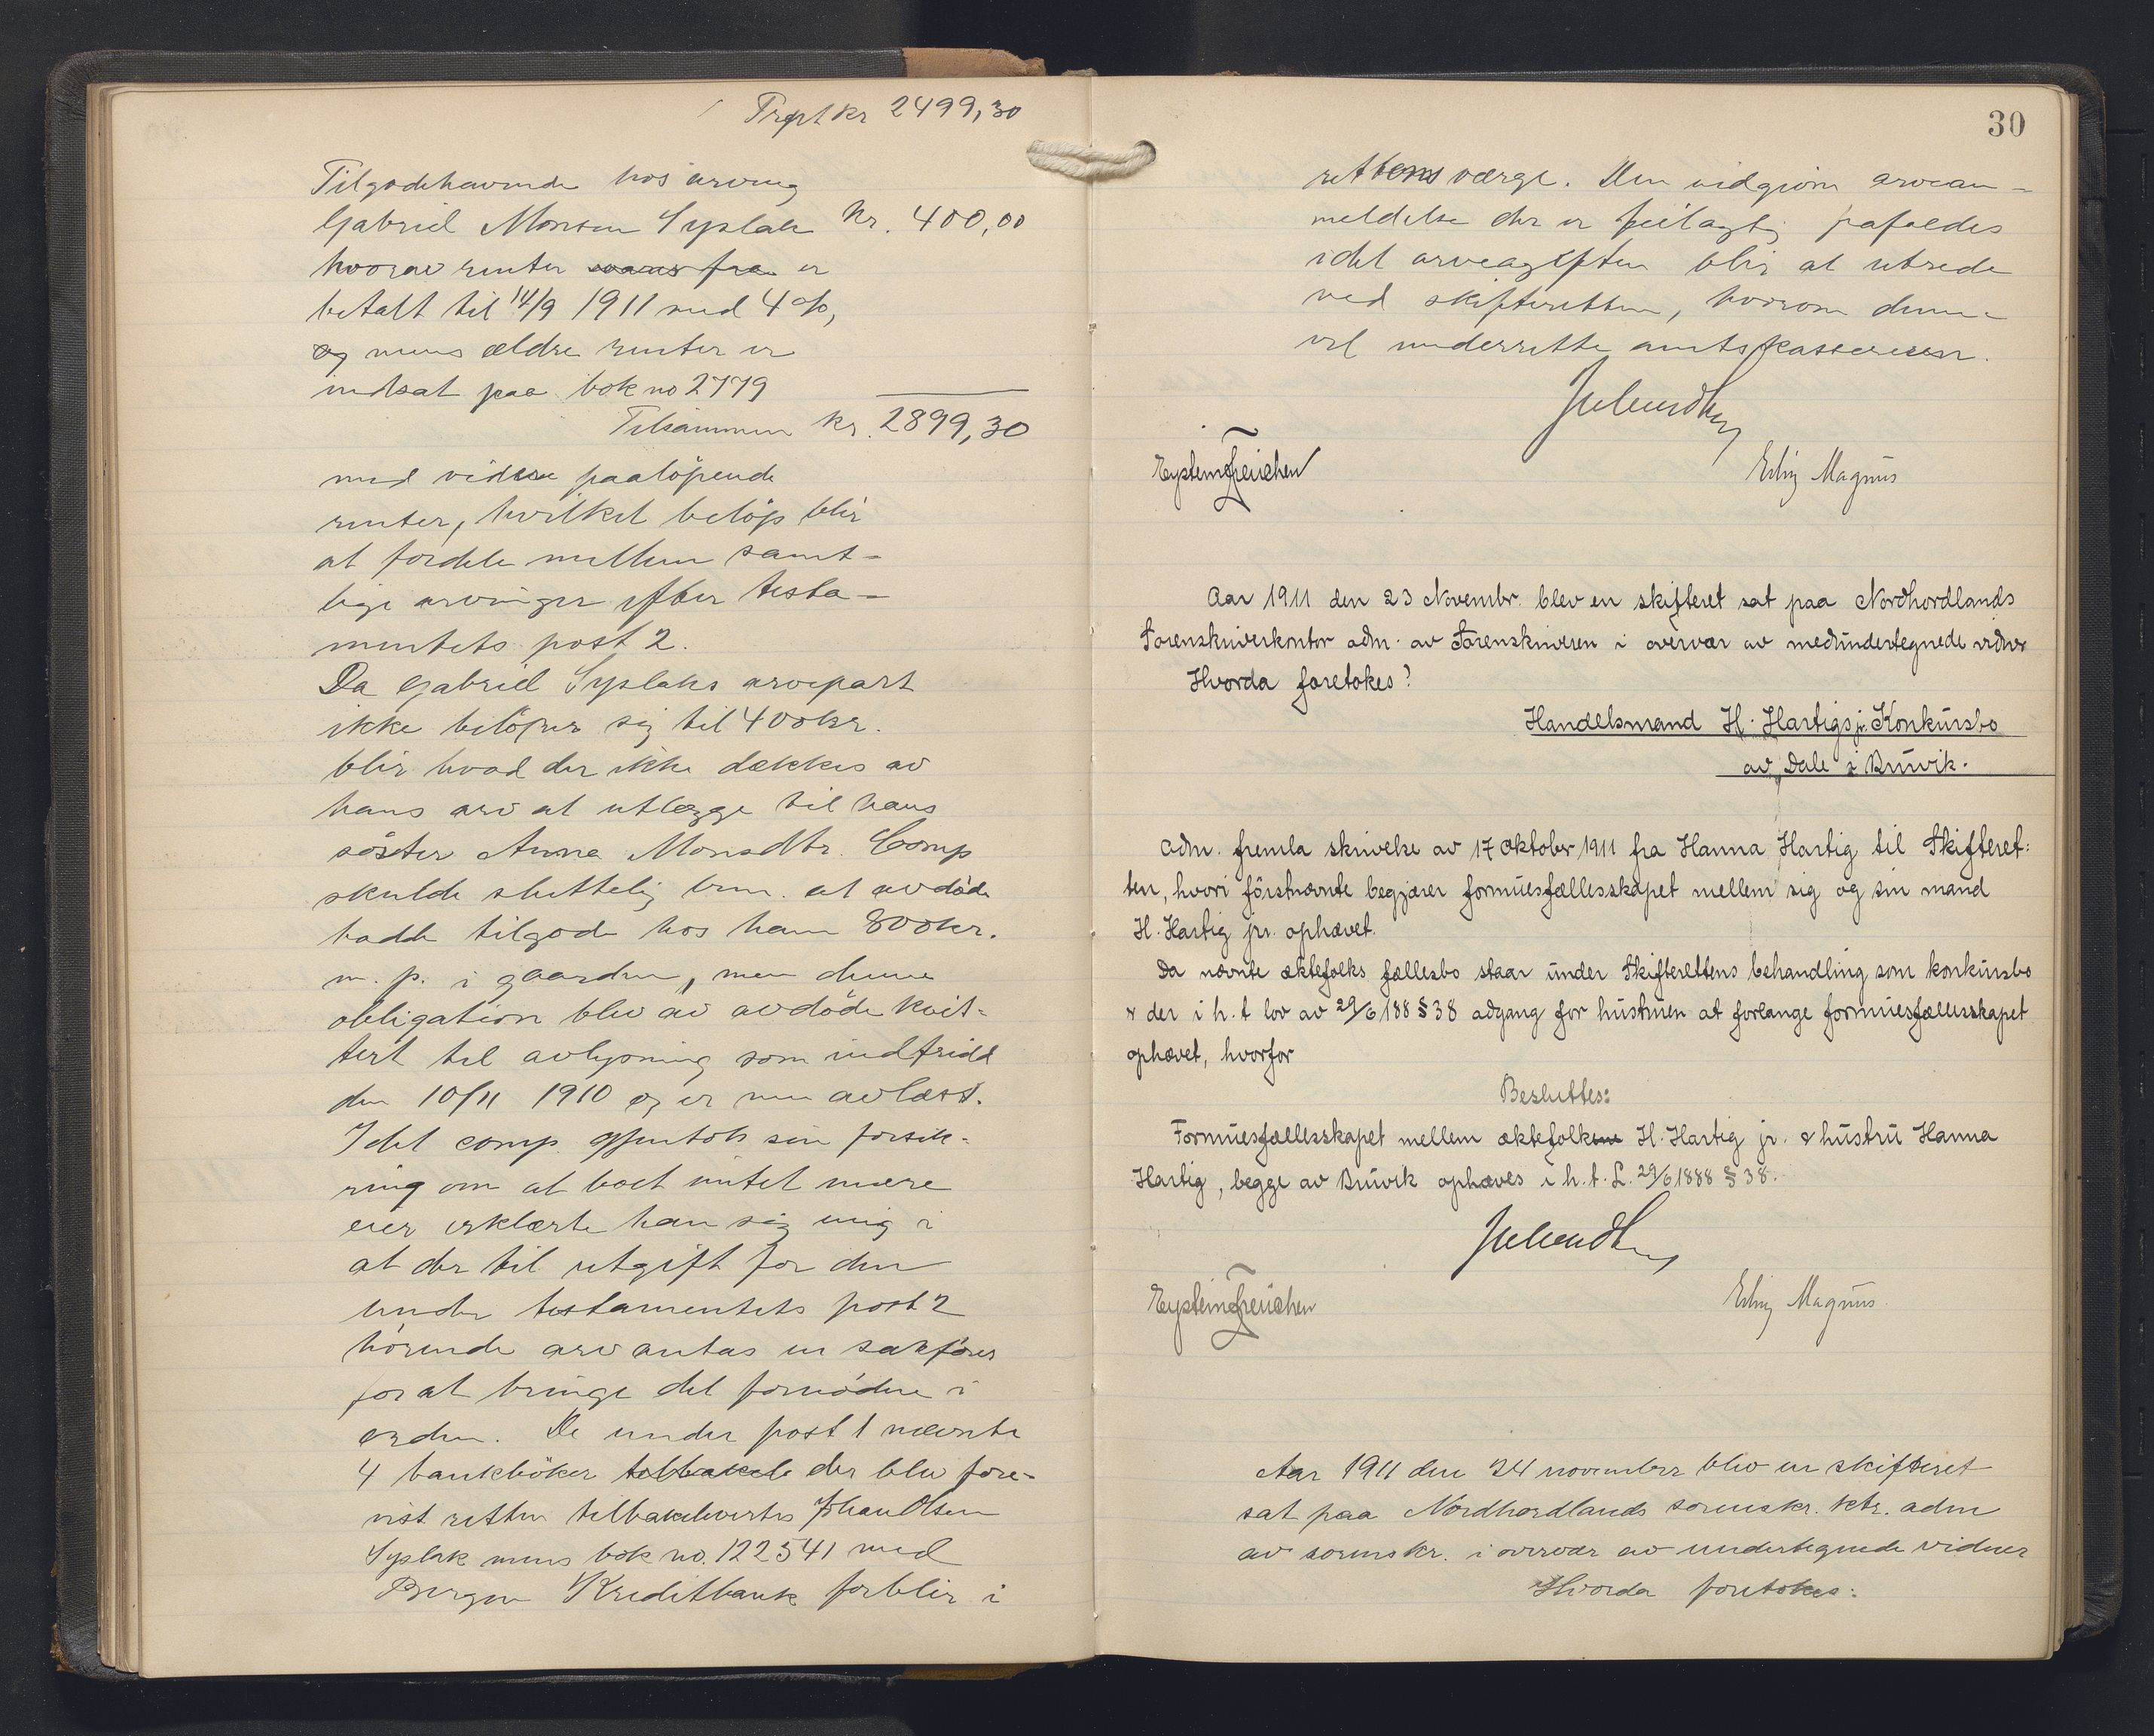 Trpt kr 2499,30
Tilgodehavende hos arving
Gabriel Monsen Syslak kr. 400,00
hvorav renter er
betalt til 14/9 1911 med 4 %,
og mens ældre renter er
indsat paa bok no 2779
Tilsammen kr. 2899,30
med videre paaløpende
renter, hvilket beløp blir
at fordele mellem samt-
lige arvinger efter testa-
mentets post 2.
Da Gabriel Syslaks arvepart
ikke beløper sig til 400 kr.
blir hvad der ikke dækkes av
hans arv at utlægge til hans
søster Anna Monsdtr. Comp
skulde sluttelig bem. at avdøde
hadde tilgode hos ham 800 kr.
m. p. i gaarden, men denne
obligation blev av avdøde kvit-
tert til avlysning som indfridd
den 10/11 1910 og er nu avlæst.
Idet comp. gjentok sin forsik-
ring om at boet intet mere
eier erklærte han sig enig i
at der til utgift for den
under testamentets post 2
hørende arv antas en sakfører
for at bringe det fornødne i
orden. De under post 1 nævnte
4 bankbøker der blev fore-
vist retten tilbakelevertes Johan Olsen
Syslak mens bok no. 122541 med
Bergen Kreditbank forblir i
30
rettens værge. Den avgivne arvean-
meldelse der er feilagtig
idet arveavgiften blir at utrede
ved skifteretten, hvorom denne
vil underrette amtskassereren.
Eystein Freuchen Erling Magnus
Aar 1911 den 23 Novembr. blev en skifteret sat paa Nordhordlands
Sorenskriverkontor adm. av Sorenskriveren i overvær av medundertegnede vidner
Hvorda foretokes:
Handelsmand H. Hartigs jr. Konkursbo
av Dale i Bruvik.
Adm. fremla skrivelse av 17 oktober 1911 fra Hanna Hartig til Skifteret:
ten, hvori førstnævnte begjærer formuesfællesskapet mellem sig og sin mand
H. Hartig jr. ophævet.
Da nævnte ektefolks fællesbo staar under Skifterettens behandling som konkursbo
er der i h. t lov av 29/6 188 § 38 adgang for hustruen at forlange formuesfællesskapet
ophævet, hvorfor
Besluttes:
Formuesfællesskapet mellem ektefolk H. Hartig jr. & hustru Hanna
Hartig, begge av Bruvik ophæves i h. t. L. 29/6 1888 § 38.
Eystein Freuchen Erling Magnus
Aar 1911 den 24 november blev en skifteret
sat paa Nordhordlands sorenskr. ktr. adm
av sorenskr. i overvær av undertegnede vidner
Hvorda foretokes: